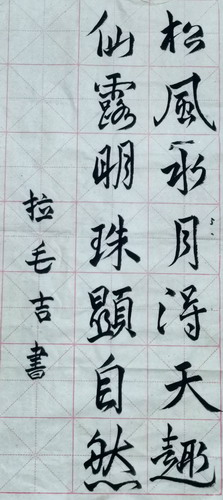 松風水月淂天趣
仙露明珠顯自然
拉毛吉書